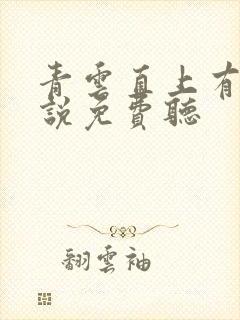 青雲直上有
說免費聽
翻雲袖